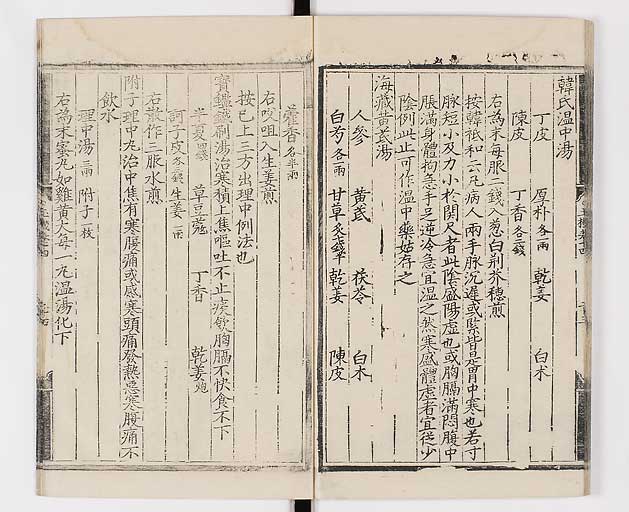 韓氏温中湯
丁皮 厚朴各一兩 乾姜 白朮
陳皮 丁香各二錢
右為末每服一錢入葱白荆芥穗煎
按韓祗和云凡病人兩手脉沉遲或緊皆是胃中寒也若寸
脉短小及力小於關尺者此陰盛陽虛也或胸膈滿悶腹中
脹滿身體拘急手足逆冷急宜温之然寒盛體虛者宜從少
陰例此止可作温中藥姑存之
海藏黄芪湯
人參 黄芪 茯苓 白朮
白芍各一兩 甘草炙 乾姜 陳皮
藿香各半兩
右㕮咀入生姜煎
按已上三方出理中例法也
寶鑑鐵刷湯治寒積上焦嘔吐不止痰飲胸膈不快食不下
半夏四錢 草豆蔻 丁香 乾姜炮
訶子皮各三錢 生姜一兩
右散作三服水煎
附子理中丸治中焦有寒腹痛或感寒頭痛發熱惡寒腹痛不
飲水
理中湯二兩 附子一枚
右為末蜜丸如雞黄大每一丸温湯化下